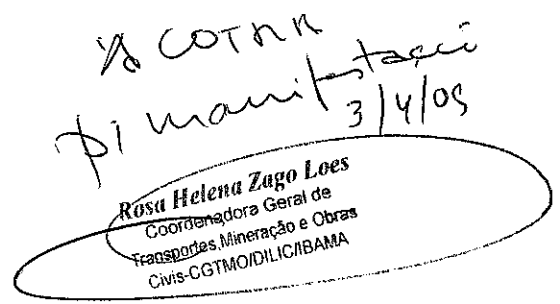 À COTRA
p/ manifestação
3/4/09
Rosa Helena Zago Loes
Coordenadora Geral de
Transportes, Mineração e Obras
Civis-CGTMO/DILIC/IBAMA